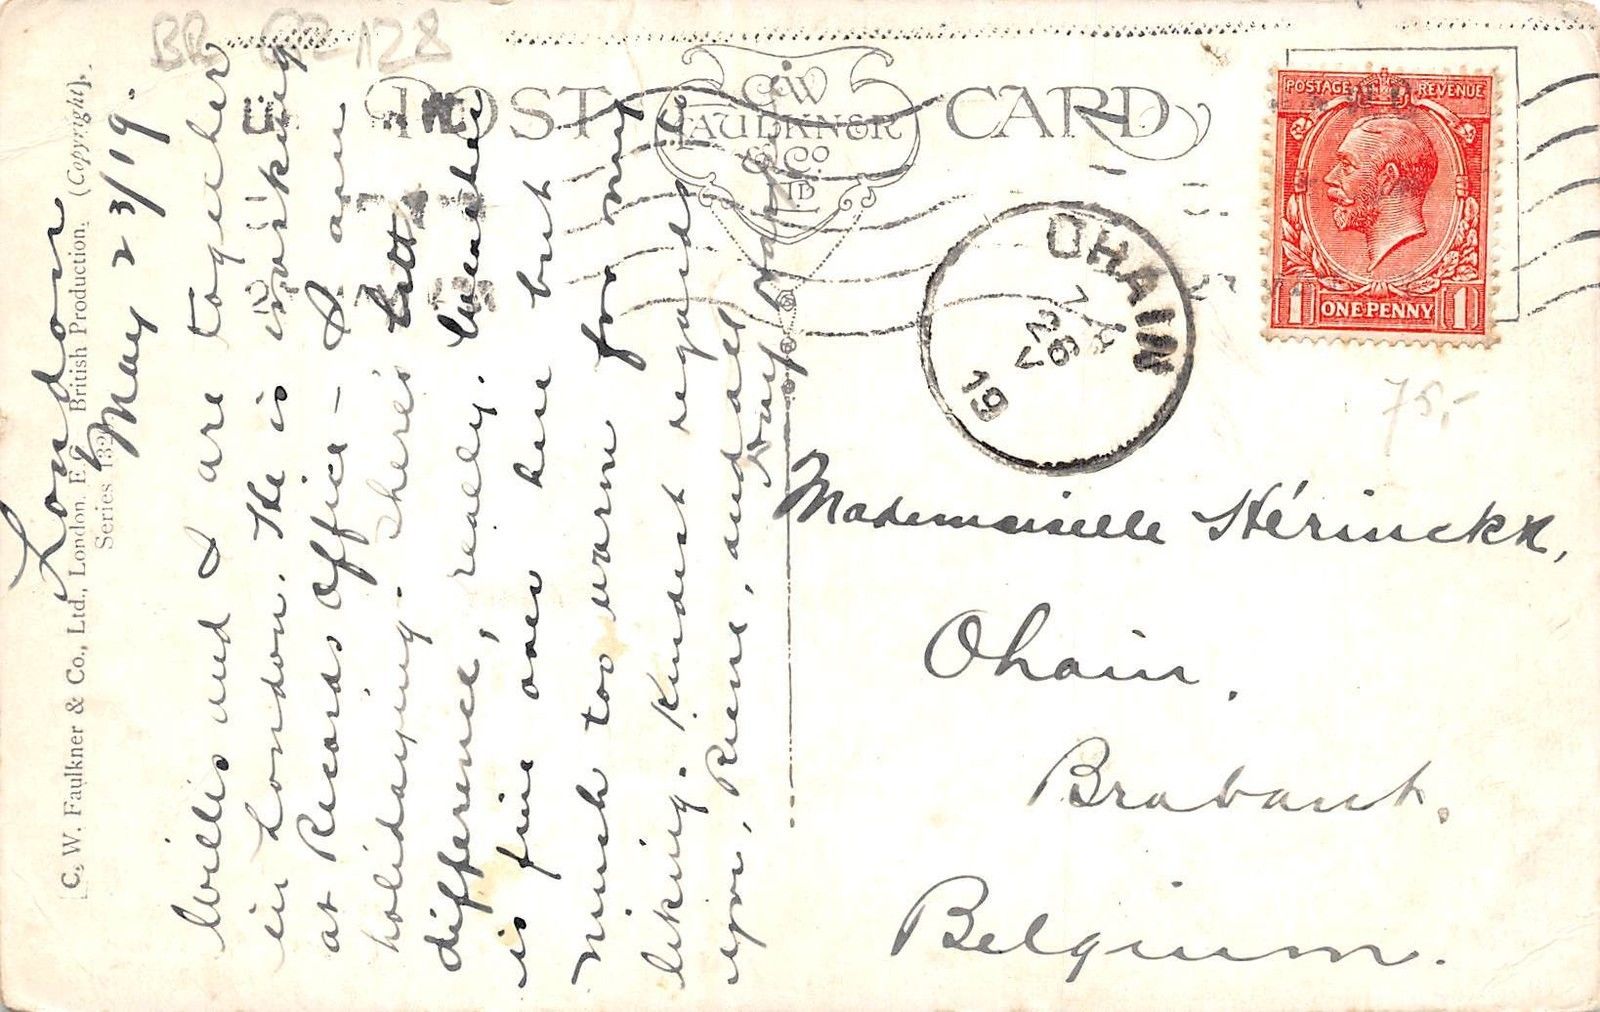 POST CARD
C.W. FAULKNER & CO. LTD
[C. W. Faulkner & Co., Ltd., London, E.C. British Production. (Copyright).
Series 132
London
May 23/19.
Willis and I are together
in London. He is working
at Records Office – I am
holidaying. There's
difference, really. Weather
is fine over here but
much too warm for my
liking. Kindest regards to
you, Rene, and all
POSTAGE REVENUE
ONE PENNY
1 1
OHAIN
26
V
19
75,-
Mademoiselle Hérinckx,
Ohain.
Brabant.
Belgium.